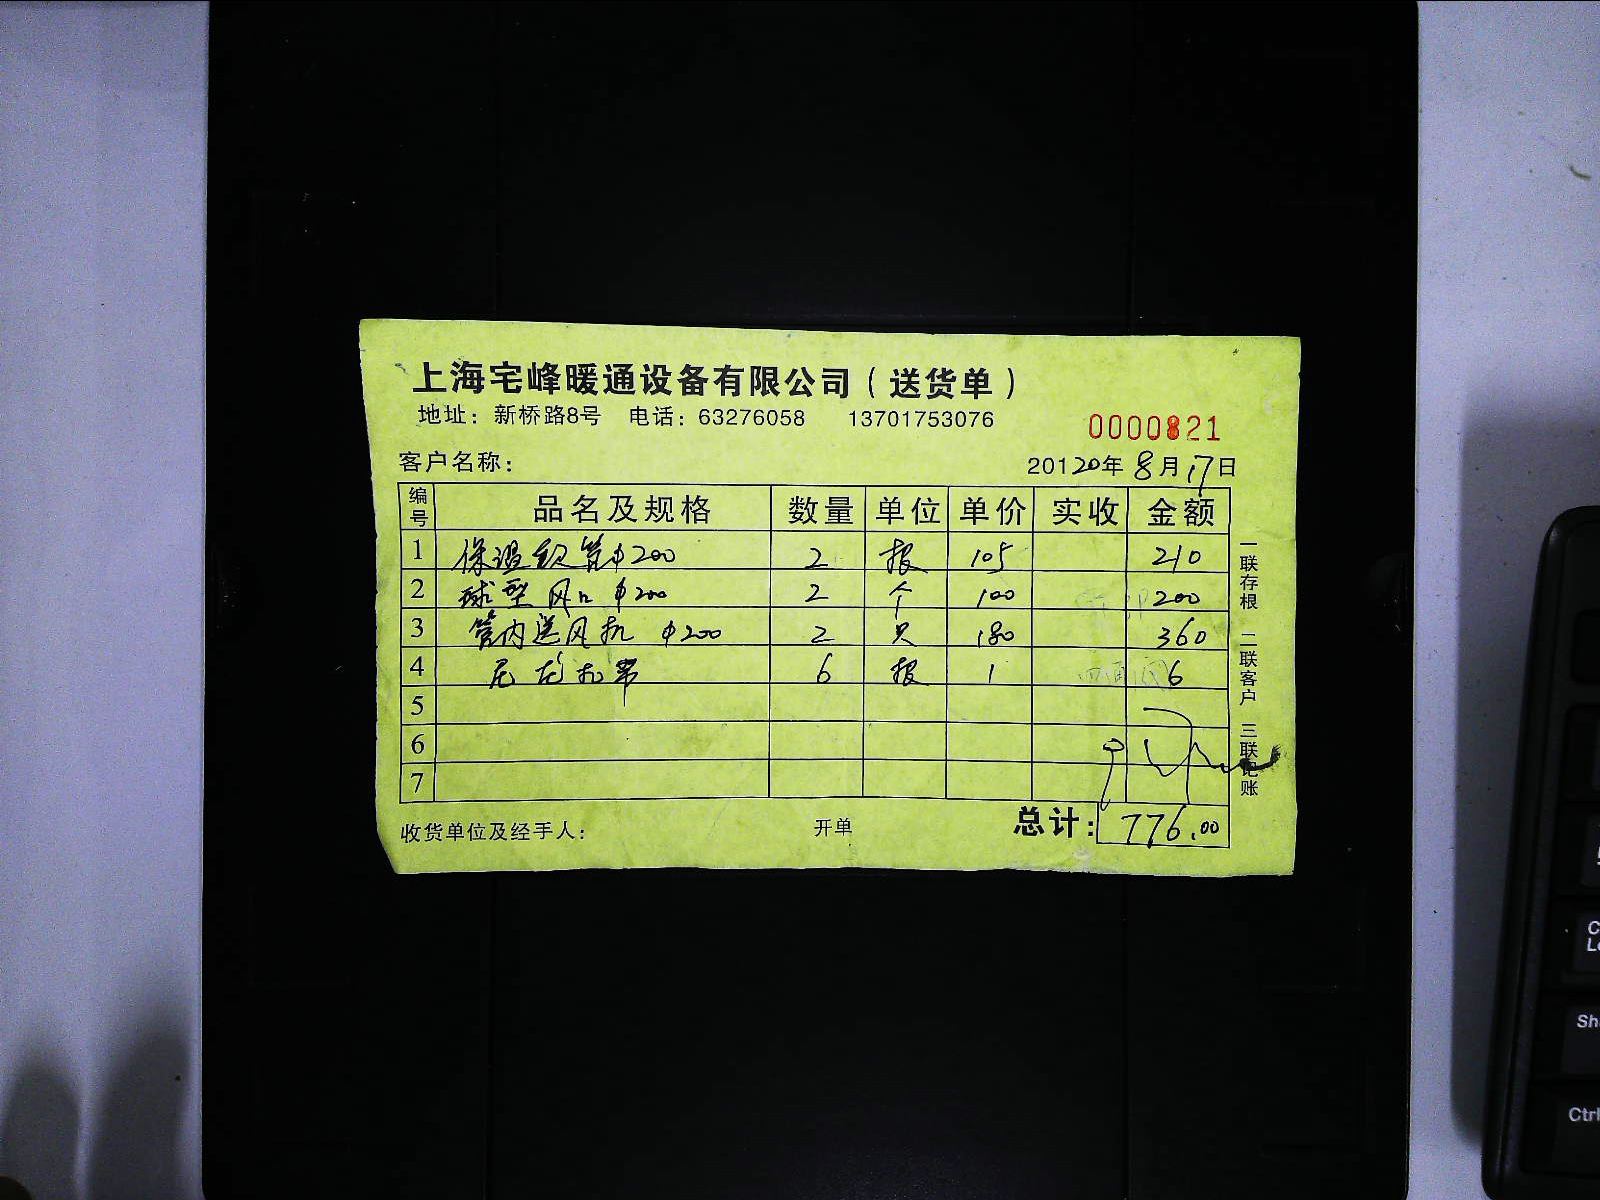 上海宅峰暖通设备有限公司（送货单）
地址：新桥路8号 电话：63276058 13701753076
0000821
客户名称：
20120年8月17日
编号 品名及规格 数量 单位 单价 实收 金额
1 保温软管φ200 2 根 105 210
2 球型风口φ200 2 个 100 200
3 管内送风机 φ200 2 只 180 360
4 尼龙扎带 6 根 1 6
5
6
7
一联存根 二联客户 三联记账
收货单位及经手人： 开单 总计：776.00
C
Sh
Ctrl